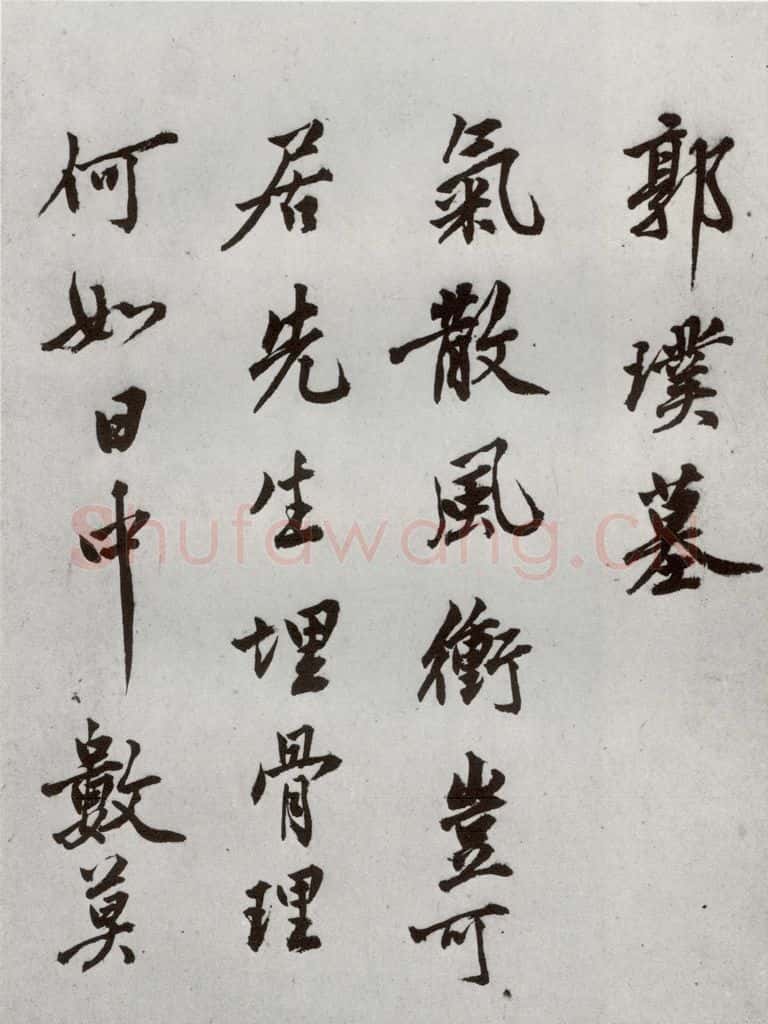 郭璞墓
氣散風衝豈可
居先生埋骨理
何如日中數莫
Shufawang.CN